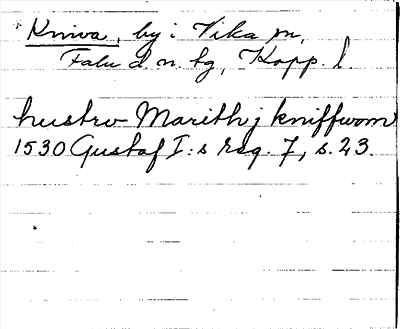 * Kniva, by i Vika sn,
Falu d. n. tg, Kopp. l.
hustrv Marith j kniffwom
1530 Gustaf I:s reg. 7, s. 23.